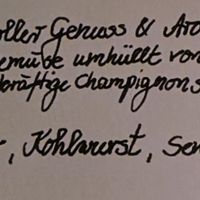 oller Genuss & Aro
emüse umhüllt von
kräftige Champignons
, Kohlwurst, Sen